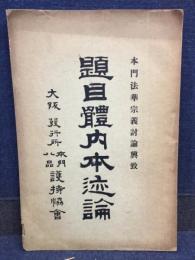 本門法華宗義討論興致
題目體内本迹論
大阪 發行所 本門八品 護持協會